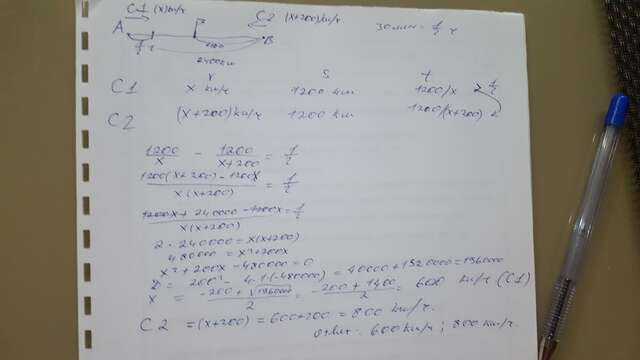 C1 (x) км/ч C2 (x+200) км/ч 30 мин = 1/2 ч
A B
1/2 ч
2400 км
v s t
C1 x км/ч 1200 км 1200/x > 1/2
C2 (x+200) км/ч 1200 км 1200/(x+200)
1200/x - 1200/(x+200) = 1/2
(1200(x+200) - 1200x)/(x(x+200)) = 1/2
(1200x + 240000 - 1200x)/(x(x+200)) = 1/2
2 · 240000 = x(x+200)
480000 = x²+200x
x² + 200x - 480000 = 0
D = 200² - 4·1·(-480000) = 40000 + 1920000 = 1960000
x = (-200 + √1960000)/2 = (-200 + 1400)/2 = 600 км/ч (C1)
C2 = (x+200) = 600+200 = 800 км/ч.
Ответ: 600 км/ч ; 800 км/ч.